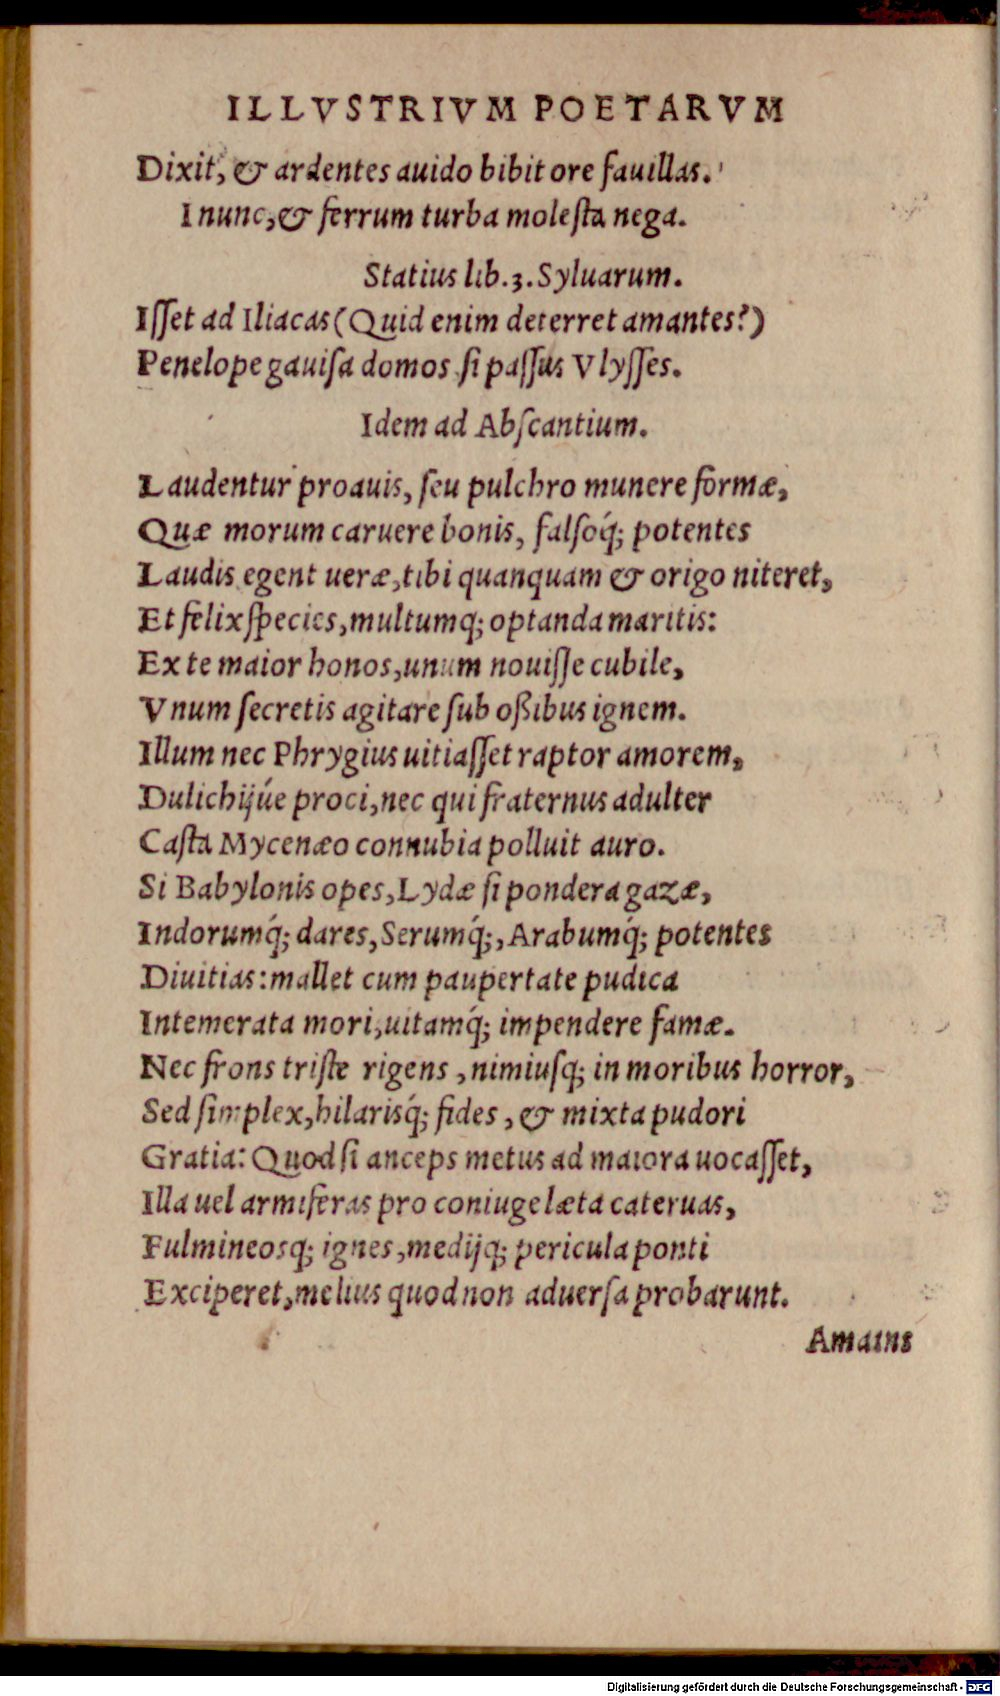 ILLVSTRIVM POETARVM
Dixit, & ardentes auido bibit ore fauillas.
I nunc, & ferrum turba molesta nega.
Statius lib.3. Syluarum.
Isset ad Iliacas (Quid enim deterret amantes?)
Penelope gauisa domos si passus Vlysses.
Idem ad Abscantium.
Laudentur proauis, seu pulchro munere formæ,
Quæ morum caruere bonis, falsoq́; potentes
Laudis egent ueræ, tibi quanquam & origo niteret,
Et felix species, multumq; optanda maritis:
Ex te maior honos, unum nouisse cubile,
Vnum secretis agitare sub oßibus ignem.
Illum nec Phrygius uitiasset raptor amorem,
Dulichijúe proci, nec qui fraternus adulter
Casta Mycenæo connubia polluit auro.
Si Babylonis opes, Lydæ si pondera gazæ,
Indorumq́; dares, Serumq́;, Arabumq́; potentes
Diuitias: mallet cum paupertate pudica
Intemerata mori, uitamq́; impendere famæ.
Nec frons triste rigens, nimiusq; in moribus horror,
Sed simplex, hilarisq́; fides, & mixta pudori
Gratia: Quod si anceps metus ad maiora uocasset,
Illa uel armiferas pro coniuge læta cateruas,
Fulmineosq; ignes, medijq; pericula ponti
Exciperet, melius quod non aduersa probarunt.
Amains
Digitalisierung gefördert durch die Deutsche Forschungsgemeinschaft - DFG